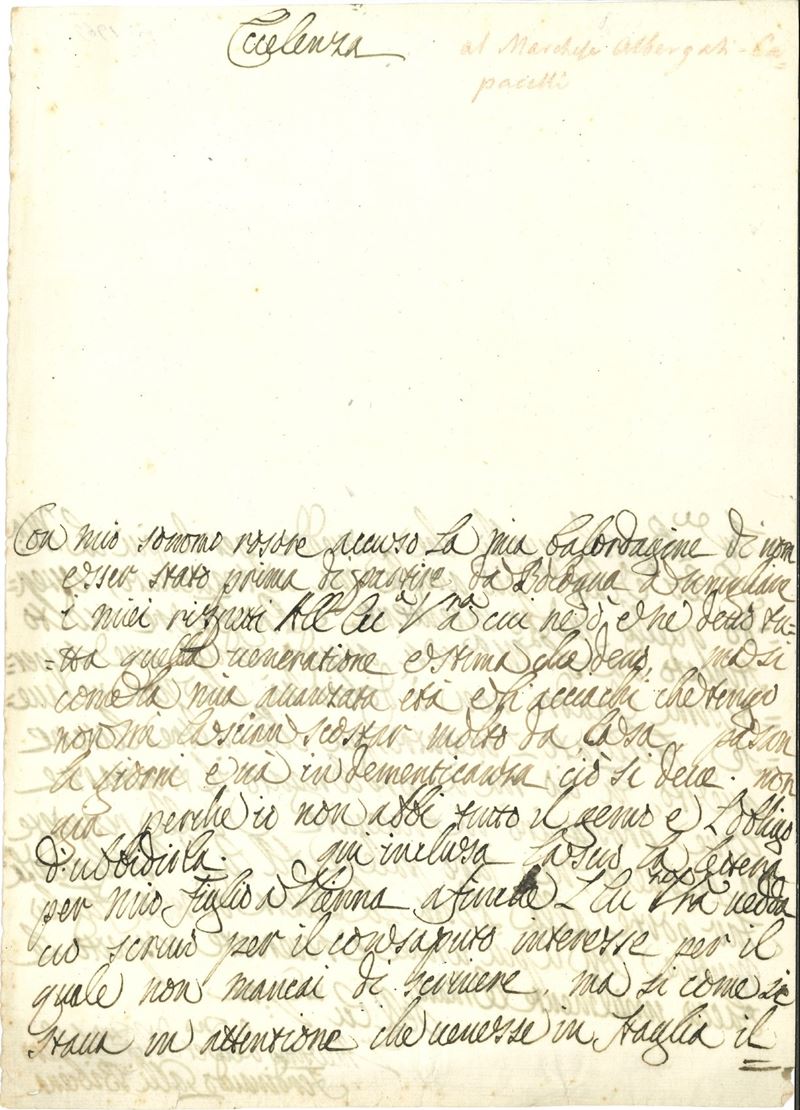 Eccelenza
al Marchese Albergati-Ca=
pacelli
Con mio sommo rosore accuso la mia balordagine di non
esser stato prima di partire da Bologna a
i miei rispetti All Ecc Vra a cui ne ò, e ne devo tu=
=tta quella veneratione e stima che devo, ma si
come la mia avanzata età e li acciachi che tengo
non mi lascian scostar molto da Casa, pasan
li giorni e và in dementicanza ciò si deve. non
mia perche io non abbi tutto il genio e L obligo
d'ubbidirla. qui inclusa lascio la letera
per mio figlio a Vienna afinche L Ecc Vra veda
ciò scrivo per il consaputo interesse per il
quale non mancai di scrivere, ma si come si
stava in attenzione che venesse in Itaglia il